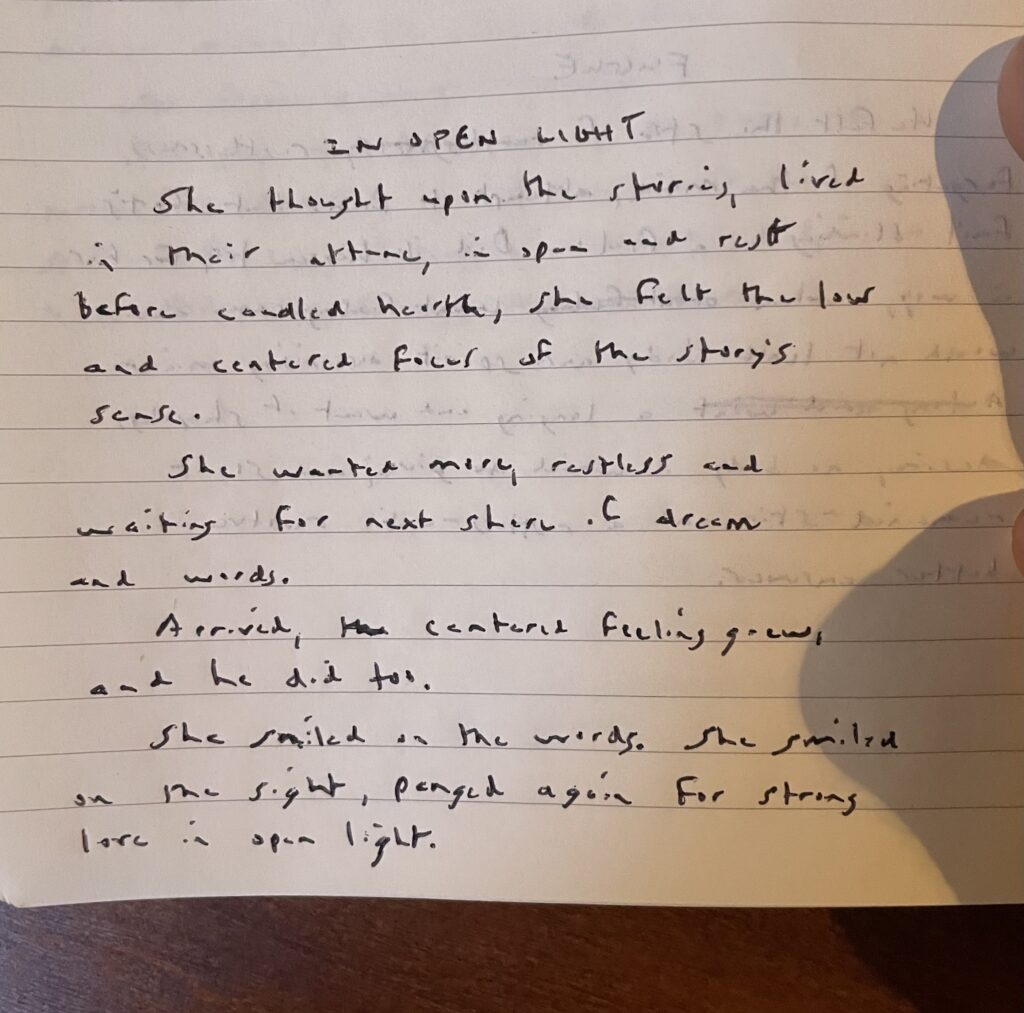 IN OPEN LIGHT
She thought upon the stories, lived
in their attune, in open and rest
before candled hearth, she felt the low
and centered focus of the story's
sense.
She wanted more, restless and
waiting for next share of dream
and words.
Arrived, the centered feeling grew,
and he did too.
She smiled on the words. She smiled
on the sight, penged again for strong
love in open light.